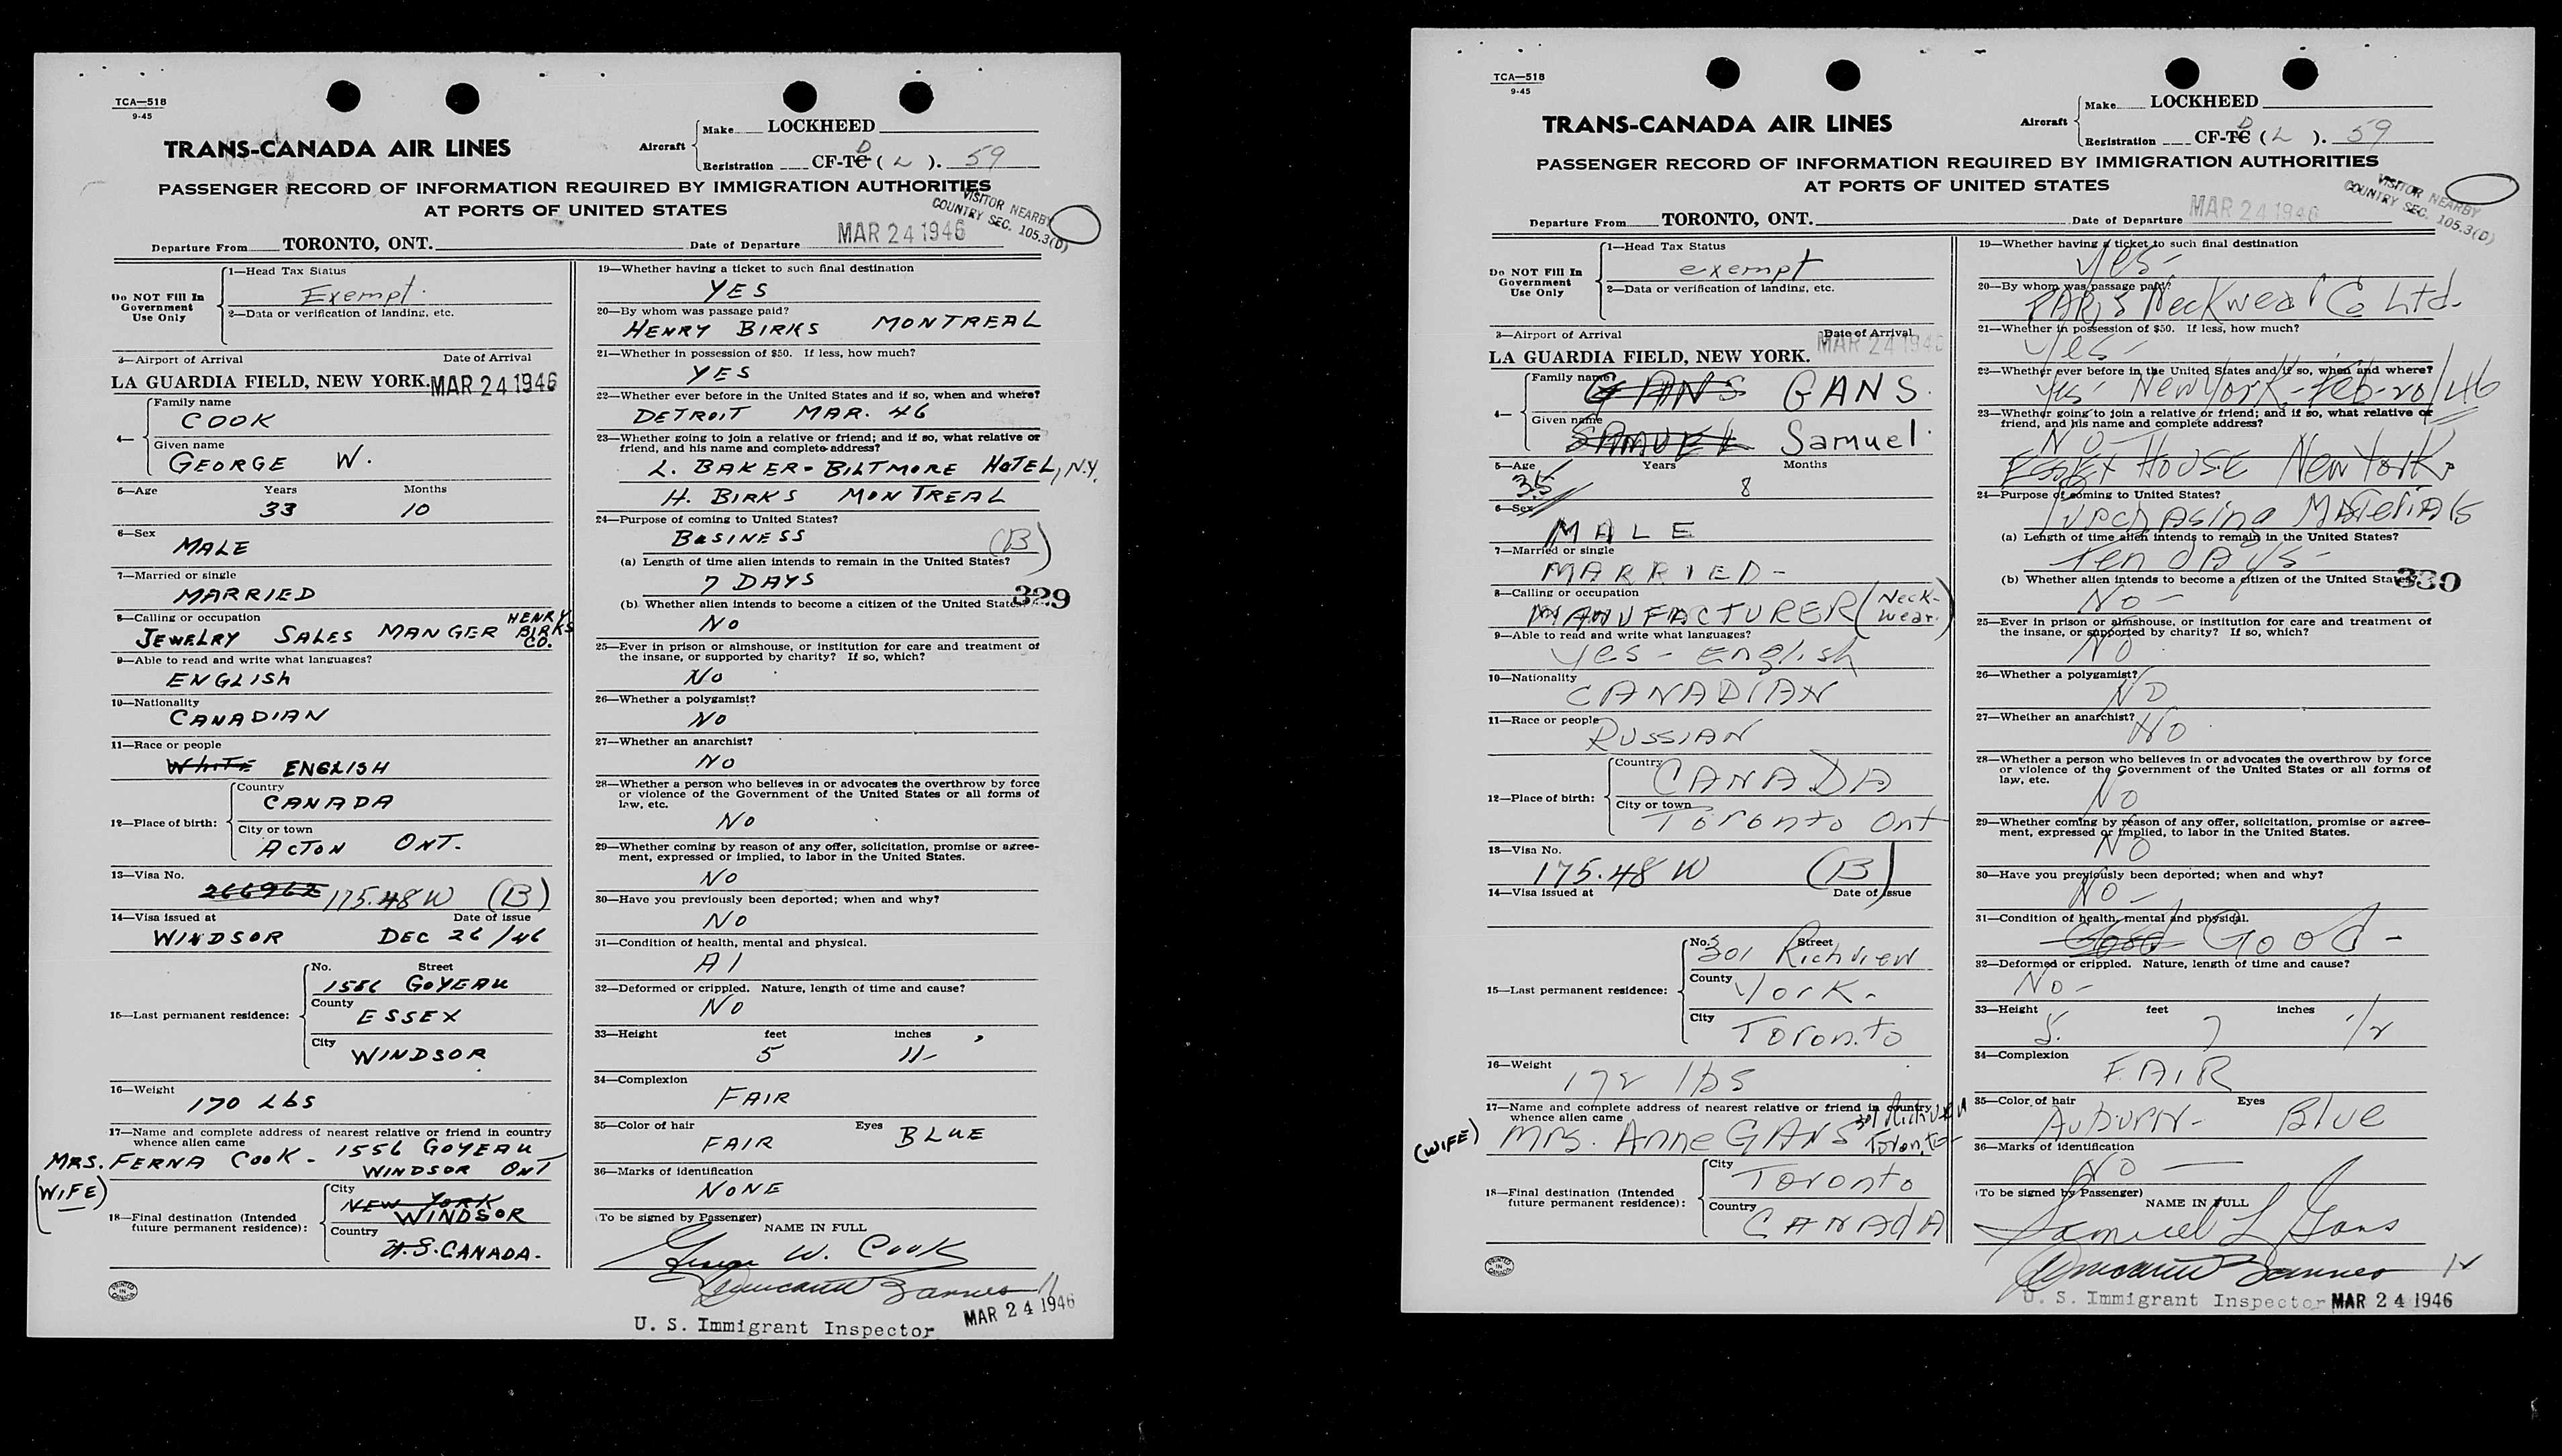 TCA—518
9-45
TRANS-CANADA AIR LINES
Aircraft
Make LOCKHEED
Registration CF-TC D ( L ). 59
PASSENGER RECORD OF INFORMATION REQUIRED BY IMMIGRATION AUTHORITIES
AT PORTS OF UNITED STATES
VISITOR NEARBY
COUNTRY SEC. 105.3(D)
Departure From TORONTO, ONT. Date of Departure MAR 24 1946
Do NOT Fill In
Government
Use Only
1—Head Tax Status
Exempt.
2—Data or verification of landing, etc.
3—Airport of Arrival Date of Arrival
LA GUARDIA FIELD, NEW YORK. MAR 24 1946
4—
Family name
COOK
Given name
GEORGE W.
5—Age Years Months
33 10
6—Sex
MALE
7—Married or single
MARRIED
8—Calling or occupation
JEWELRY SALES MANGER HENRY BIRKS CO.
9—Able to read and write what languages?
ENGLISH
10—Nationality
CANADIAN
11—Race or people
WHITE ENGLISH
12—Place of birth:
Country
CANADA
City or town
ACTON ONT.
13—Visa No.
266962 175.48 W (B)
14—Visa issued at Date of issue
WINDSOR DEC 26/46
15—Last permanent residence:
No. Street
1556 GOYEAU
County
ESSEX
City
WINDSOR
16—Weight
170 LbS
17—Name and complete address of nearest relative or friend in country
whence alien came
MRS. FERNA COOK - 1556 GOYEAU
WINDSOR ONT
(WIFE)
18—Final destination (Intended
future permanent residence):
City
NEW YORK
WINDSOR
Country
U.S. CANADA.
PRINTED IN CANADA
19—Whether having a ticket to such final destination
YES
20—By whom was passage paid?
HENRY BIRKS MONTREAL
21—Whether in possession of $50. If less, how much?
YES
22—Whether ever before in the United States and if so, when and where?
DETROIT MAR. 46
23—Whether going to join a relative or friend; and if so, what relative or
friend, and his name and complete address?
L. BAKER - BILTMORE HOTEL, N.Y.
H. BIRKS MONTREAL
24—Purpose of coming to United States?
BUSINESS (B)
(a) Length of time alien intends to remain in the United States?
7 DAYS
(b) Whether alien intends to become a citizen of the United States?
329
No
25—Ever in prison or almshouse, or institution for care and treatment of
the insane, or supported by charity? If so, which?
No
26—Whether a polygamist?
No
27—Whether an anarchist?
No
28—Whether a person who believes in or advocates the overthrow by force
or violence of the Government of the United States or all forms of
law, etc.
No
29—Whether coming by reason of any offer, solicitation, promise or agree-
ment, expressed or implied, to labor in the United States.
No
30—Have you previously been deported; when and why?
No
31—Condition of health, mental and physical.
A1
32—Deformed or crippled. Nature, length of time and cause?
No
33—Height feet inches
5 11-
34—Complexion
FAIR
35—Color of hair Eyes
FAIR BLUE
36—Marks of identification
NONE
(To be signed by Passenger)
NAME IN FULL
George W. Cook
U. S. Immigrant Inspector MAR 24 1946
TCA—518
9-45
TRANS-CANADA AIR LINES
Aircraft
Make LOCKHEED
Registration CF-TC D ( L ). 59
PASSENGER RECORD OF INFORMATION REQUIRED BY IMMIGRATION AUTHORITIES
AT PORTS OF UNITED STATES
VISITOR NEARBY
COUNTRY SEC. 105.3(D)
Departure From TORONTO, ONT. Date of Departure MAR 24 1946
Do NOT Fill In
Government
Use Only
1—Head Tax Status
exempt
2—Data or verification of landing, etc.
3—Airport of Arrival Date of Arrival
LA GUARDIA FIELD, NEW YORK. MAR 24 1946
4—
Family name
GANS GANS.
Given name
SAMUEL Samuel.
5—Age Years Months
35 8
6—Sex
MALE
7—Married or single
MARRIED-
8—Calling or occupation
MANUFACTURER (Neck-
wear.)
9—Able to read and write what languages?
Yes - English
10—Nationality
CANADIAN
11—Race or people
RUSSIAN
12—Place of birth:
Country
CANADA
City or town
Toronto Ont
13—Visa No.
175.48 W (B)
14—Visa issued at Date of issue
15—Last permanent residence:
No. Street
301 Richview
County
York-
City
Toronto
16—Weight
172 lbs
17—Name and complete address of nearest relative or friend in country
whence alien came
(WIFE) Mrs. Anne GANS 301 Richview Toronto
18—Final destination (Intended
future permanent residence):
City
Toronto
Country
CANADA
PRINTED IN CANADA
19—Whether having a ticket to such final destination
Yes-
20—By whom was passage paid?
PARIS Neckwear Co Ltd.
21—Whether in possession of $50. If less, how much?
Yes-
22—Whether ever before in the United States and if so, when and where?
Yes- New York - Feb-20/46
23—Whether going to join a relative or friend; and if so, what relative or
friend, and his name and complete address?
NO
ESSEX HOUSE New York
24—Purpose of coming to United States?
Purchasing Materials
(a) Length of time alien intends to remain in the United States?
Ten days-
(b) Whether alien intends to become a citizen of the United States?
330
No-
25—Ever in prison or almshouse, or institution for care and treatment of
the insane, or supported by charity? If so, which?
NO
26—Whether a polygamist?
NO
27—Whether an anarchist?
NO
28—Whether a person who believes in or advocates the overthrow by force
or violence of the Government of the United States or all forms of
law, etc.
NO
29—Whether coming by reason of any offer, solicitation, promise or agree-
ment, expressed or implied, to labor in the United States.
NO
30—Have you previously been deported; when and why?
No-
31—Condition of health, mental and physical.
Good Good-
32—Deformed or crippled. Nature, length of time and cause?
No-
33—Height feet inches
5. 7 1/2
34—Complexion
FAIR
35—Color of hair Eyes
Auburn- Blue
36—Marks of identification
NO
(To be signed by Passenger)
NAME IN FULL
Samuel L Gans
U. S. Immigrant Inspector MAR 24 1946